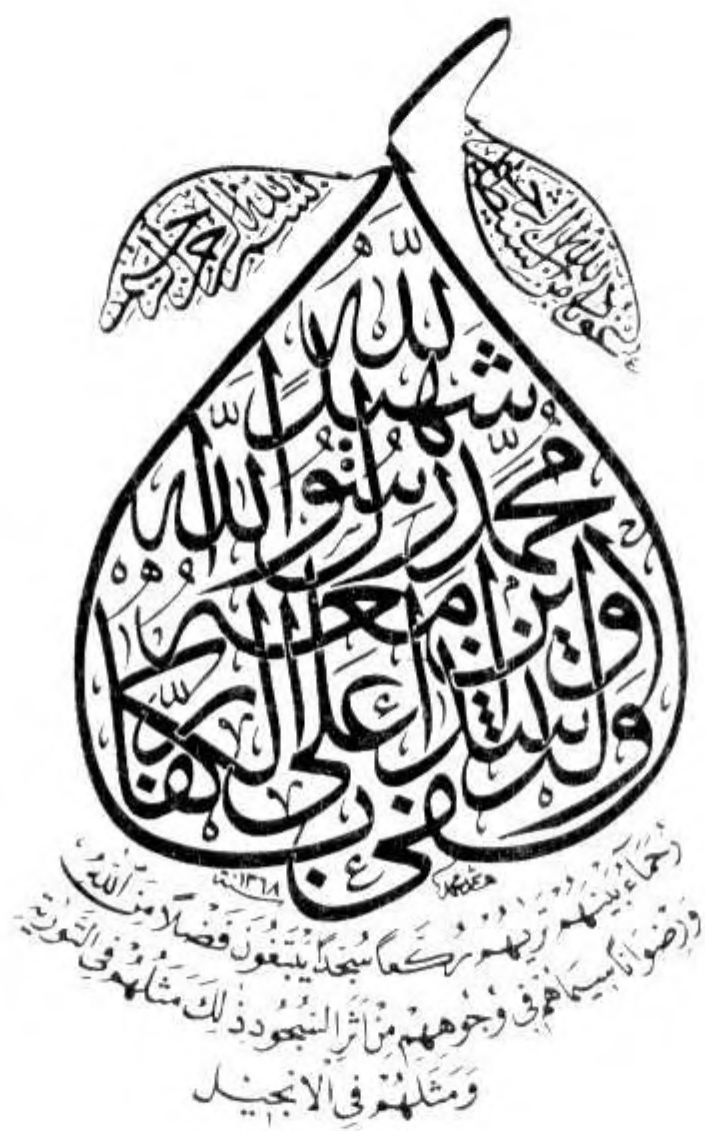 أعوذ بالله من الشيطان الرجيم
بسم الله الرحمن الرحيم
وكفى بالله شهيدًا محمد رسول الله والذين معه أشداء على الكفار
١٣٦٨
رُحَمَاءُ بَيْنَهُمْ تَرٰيهُمْ رُكَّعاً سُجَّداً يَبْتَغُونَ فَضْلًا مِنَ اللّٰهِ
وَرِضْوَاناً سِيمَاهُمْ فِي وُجُوهِهِمْ مِنْ اَثَرِ السُّجُودِ ذٰلِكَ مَثَلُهُمْ فِي التَّوْرٰيةِ
وَمَثَلُهُمْ فِي الْاِنْجِيلِ